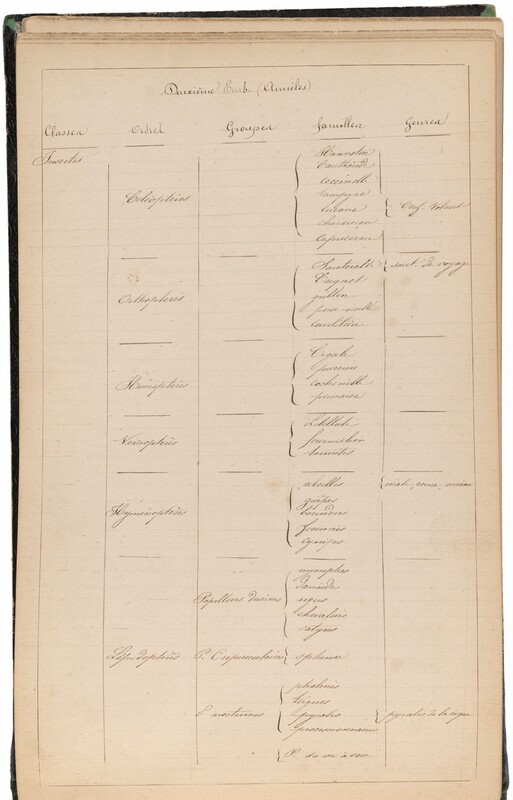 Deuxième Emb. (Annelés)
Classes Ordres Groupes familles Genres
Insectes
Hanneton
Cantharide
coccinelle
Coléoptères
lucane
Cerf Volant
charançon
capricorne
Sauterelle
saut. de voyage
Criquet
grillon
Orthoptères
perce-oreille
courtilière
Cigale
puceron
Hémiptères
cochenille
punaise
Libellule
Névroptères
fourmilion
termites
abeilles
mâle, reine, ouvrière
guêpes
bourdons
Hyménoptères
fourmis
cynips
nymphes
Danaïdes
Papillons diurnes
argus
chevaliers
satyres
Lépidoptères P. Crépusculaires sphinx
phalènes
teignes
P. nocturnes
pyrales
pyrales de la vigne
processionnaires
P. du ver à soie